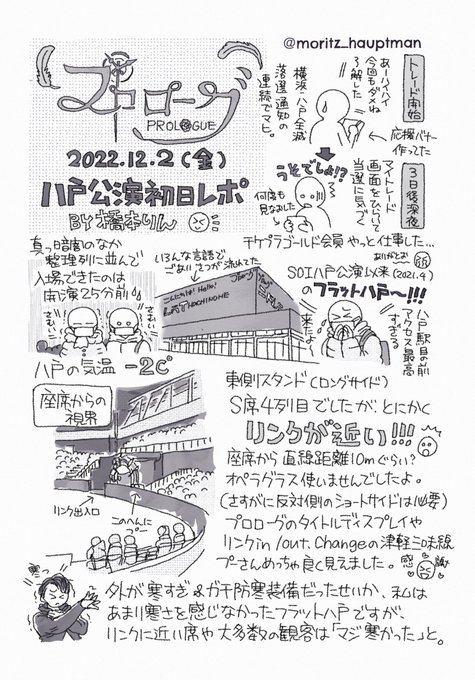 @moritz_hauptman
プロローグ
PROLOGUE
2022.12.2(金)
八戸公演初日レポ
BY 橋本りん
トレード開始
あーハイハイ
今回もダメね
了解した
横浜・八戸全滅
落選通知の
連続でマヒ。
応援バナー
作ってた
3日後深夜
マイトレード
画面をひらいて
当選に気づく
うそでしょ!?
何度も
見なおした
テケプラゴールド会員 やっと仕事した…
ありがとお
SOI八戸公演以来(2021.4)
のフラット八戸〜!!!
八戸駅目の前
アクセス最高
すぎる
来たよ
真っ暗闇のなか
整理列に並んで
入場できたのは
開演25分前
さむい
さむい
いろんな言語で
ごあいさつが流れてた
こんにちは! Hello!
FLAT HACHINOHE
八戸の気温 -2℃
座席からの
視界
リンク出入口
このへんに
プー
東側スタンド(ロングサイド)
S席4列目でしたが、とにかく
リンクが近い!!!
座席から直線距離10mぐらい?
オペラグラス使いませんでしたよ。
(さすがに反対側のショートサイドは必要)
プロローグのタイトルディスプレイや
リンクin/out、Changeの津軽三味線
プーさんめっちゃ良く見えました。感謝
寒っ
外が寒すぎ&ガチ防寒装備だったせいか、私は
あまり寒さを感じなかったフラット八戸ですが、
リンクに近い席や大多数の観客は「マジ寒かった」と。